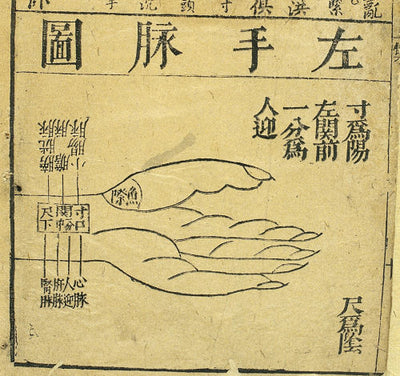 左手脈圖
寸爲陽
左關前
一分爲
人迎
魚際
小腸脈
膽脈
膀胱脈
寸口
尺下
心脈
人迎
肝脈
腎脈
尺爲陰